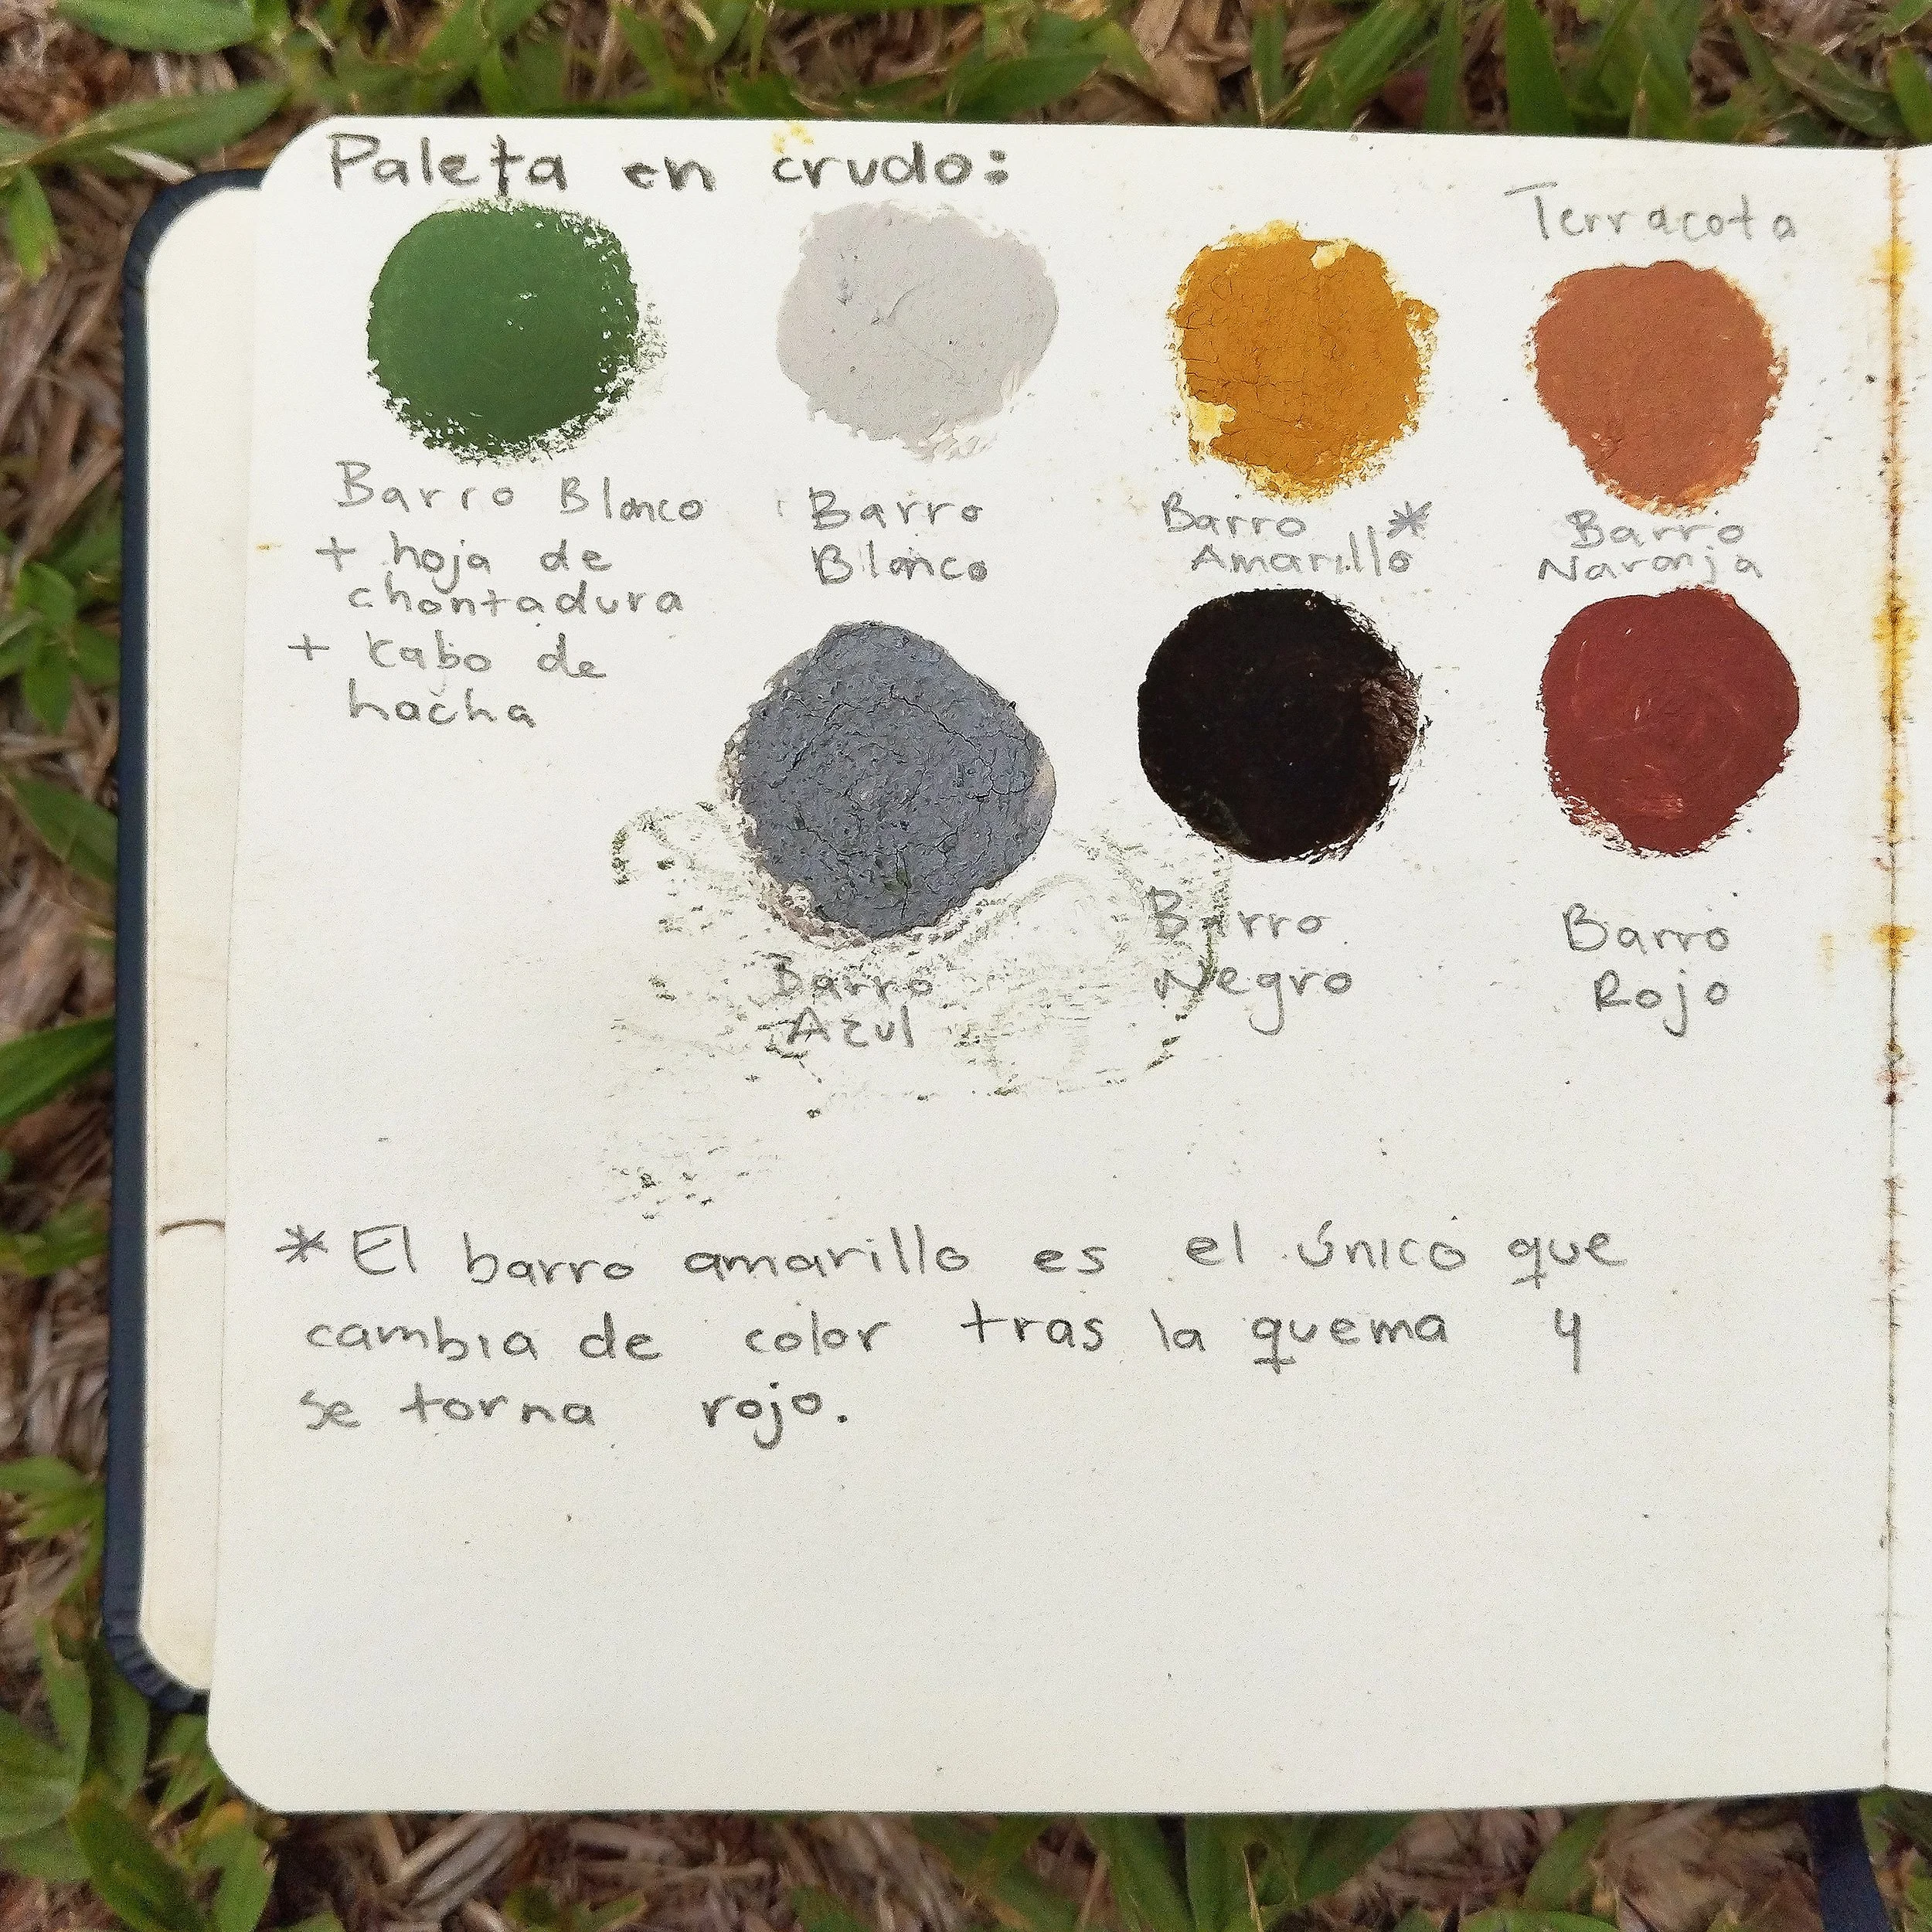 Paleta en crudo:
Barro Blanco
+ hoja de
chontadura
+ cabo de
hacha
Barro
Blanco
Barro *
Amarillo
Terracota
Barro
Naranja
Barro
Azul
Barro
Negro
Barro
Rojo
* El barro amarillo es el único que
cambia de color tras la quema y
se torna rojo.